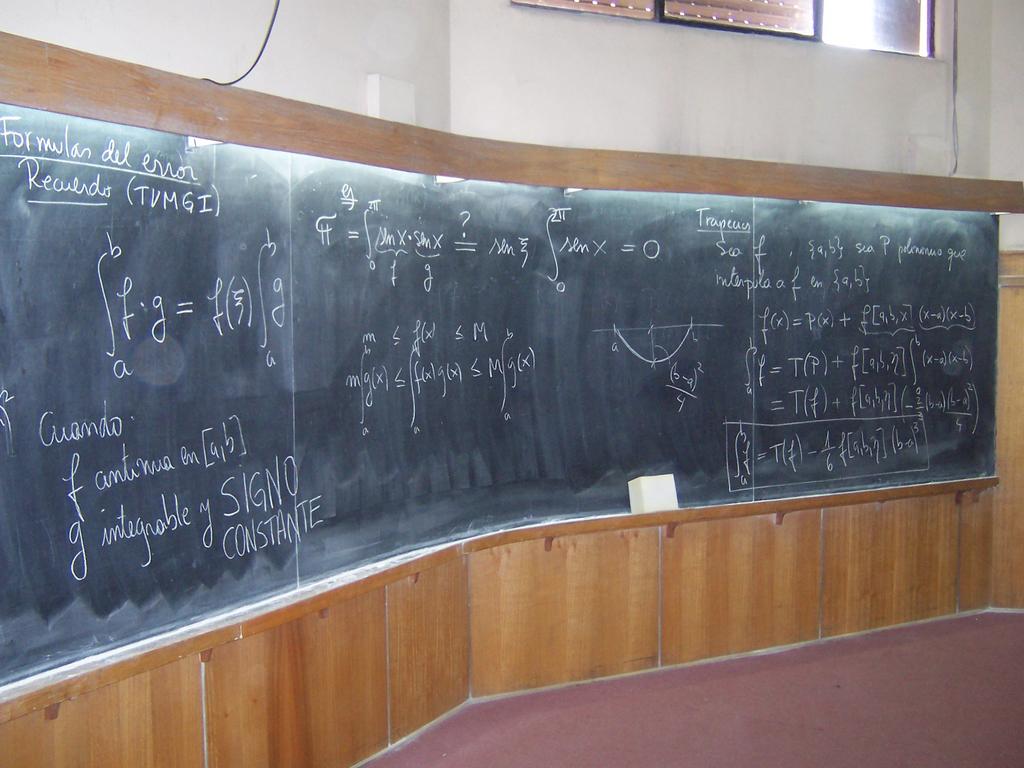 Formulas del error
Recuerdo (TVMGI)
∫_a^b f·g = f(ξ) ∫_a^b g
Cuando:
f continua en [a,b]
g integrable y SIGNO
CONSTANTE
ej
π = ∫_0^{2π} sen x · sen x =? sen ξ ∫_0^{2π} sen x = 0
f g
m ≤ f(x) ≤ M
m ∫_a^b g(x) ≤ ∫_a^b f(x) g(x) ≤ M ∫_a^b g(x)
a b
(b-a)²/4
Trapecios
Sea f , {a,b} sea P polinomio que
interpola a f en {a,b}
f(x) = P(x) + f[a,b,x] (x-a)(x-b)
∫_a^b f = T(P) + f[a,b,η] ∫_a^b (x-a)(x-b)
= T(f) + f[a,b,η] (-2/3 (b-a) (b-a)²/4)
∫_a^b f = T(f) - 1/6 f[a,b,η] (b-a)³